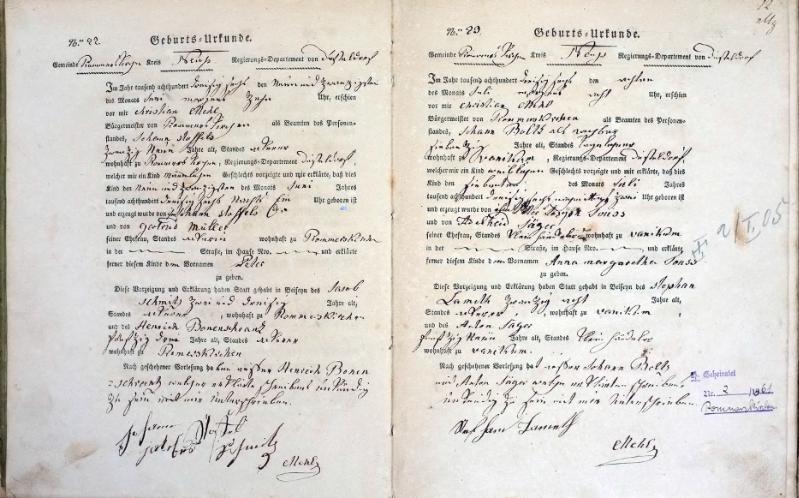 No. 22. Geburts-Urkunde.
Gemeinde Rommerskirchen Kreis Neuß Regierungs-Departement von Düsseldorf
Im Jahr tausend achthundert dreisig sechs den Neun und zwanzigsten
des Monats Juni morgens Zehn Uhr, erschien
vor mir Christian Mehl
Bürgermeister von Rommerskirchen als Beamten des Personen-
standes, Johann Stoffels
zwanzig Neun Jahre alt, Standes
wohnhaft zu Rommerskirchen, Regierungs-Departement Düsseldorf,
welcher mir ein Kind männlichen Geschlechts vorzeigte und mir erklärte, daß dies
Kind den Neun und zwanzigsten des Monats Juni Jahres
tausend achthundert dreisig sechs Uhr geboren ist
und erzeugt wurde von Johann Stoffels
und von Gertrud Müller
seiner Ehefrau, Standes wohnhaft zu Rommerskirchen
in der Straße, im Hause Nro. und erklärte
ferner diesem Kinde den Vornamen Peter
zu geben.
Diese Vorzeigung und Erklärung haben Statt gehabt in Beiseyn des Jacob
Schmitz zwei und dreisig Jahre alt,
Standes wohnhaft zu Rommerskirchen
und des Henrich Bonenschranz
fünfzig drei Jahre alt, Standes
wohnhaft zu Rommerskirchen
Nach geschehener Vorlesung haben außer Henrich Bonen-
schranz welcher erklärte schreibens unkündig
zu sein mit mir unterschrieben.
Johann Stoffels
Jacobus Schmitz
Mehl
12
No. 23. Geburts-Urkunde.
Gemeinde Rommerskirchen Kreis Neuß Regierungs-Departement von Düsseldorf
Im Jahr tausend achthundert dreisig sechs den achten
des Monats Juli acht Uhr, erschien
vor mir Christian Mehl
Bürgermeister von Rommerskirchen als Beamten des Personen-
standes, Johann Boltz als
siebenzig Jahre alt, Standes Tagelöhner
wohnhaft zu Vanikum, Regierungs-Departement Düsseldorf,
welcher mir ein Kind weiblichen Geschlechts vorzeigte und mir erklärte, daß dies
Kind den siebenten des Monats Juli Jahres
tausend achthundert dreisig sechs nachmittag zwei Uhr geboren ist
und erzeugt wurde von Joseph Sonss
und von Adelheid Jäger
seiner Ehefrau, Standes Kleinhändeler wohnhaft zu Vanikum
in der Straße, im Hause Nro. und erklärte
ferner diesem Kinde den Vornamen Anna margaretha Sonss
zu geben.
Diese Vorzeigung und Erklärung haben Statt gehabt in Beiseyn des Stephan
Lameth zwanzig acht Jahre alt,
Standes wohnhaft zu Vanikum,
und des Anton Jäger
fünfzig Neun Jahre alt, Standes Kleinhändeler
wohnhaft zu Vanikum.
Nach geschehener Vorlesung hat außer Johann Boltz
und Anton Jäger welche erklärten schreibens
unkündig zu sein mit mir unterschrieben.
Stephan Lameth
Mehl
Geheiratet
Nr. 2 1861
Rommerskirchen